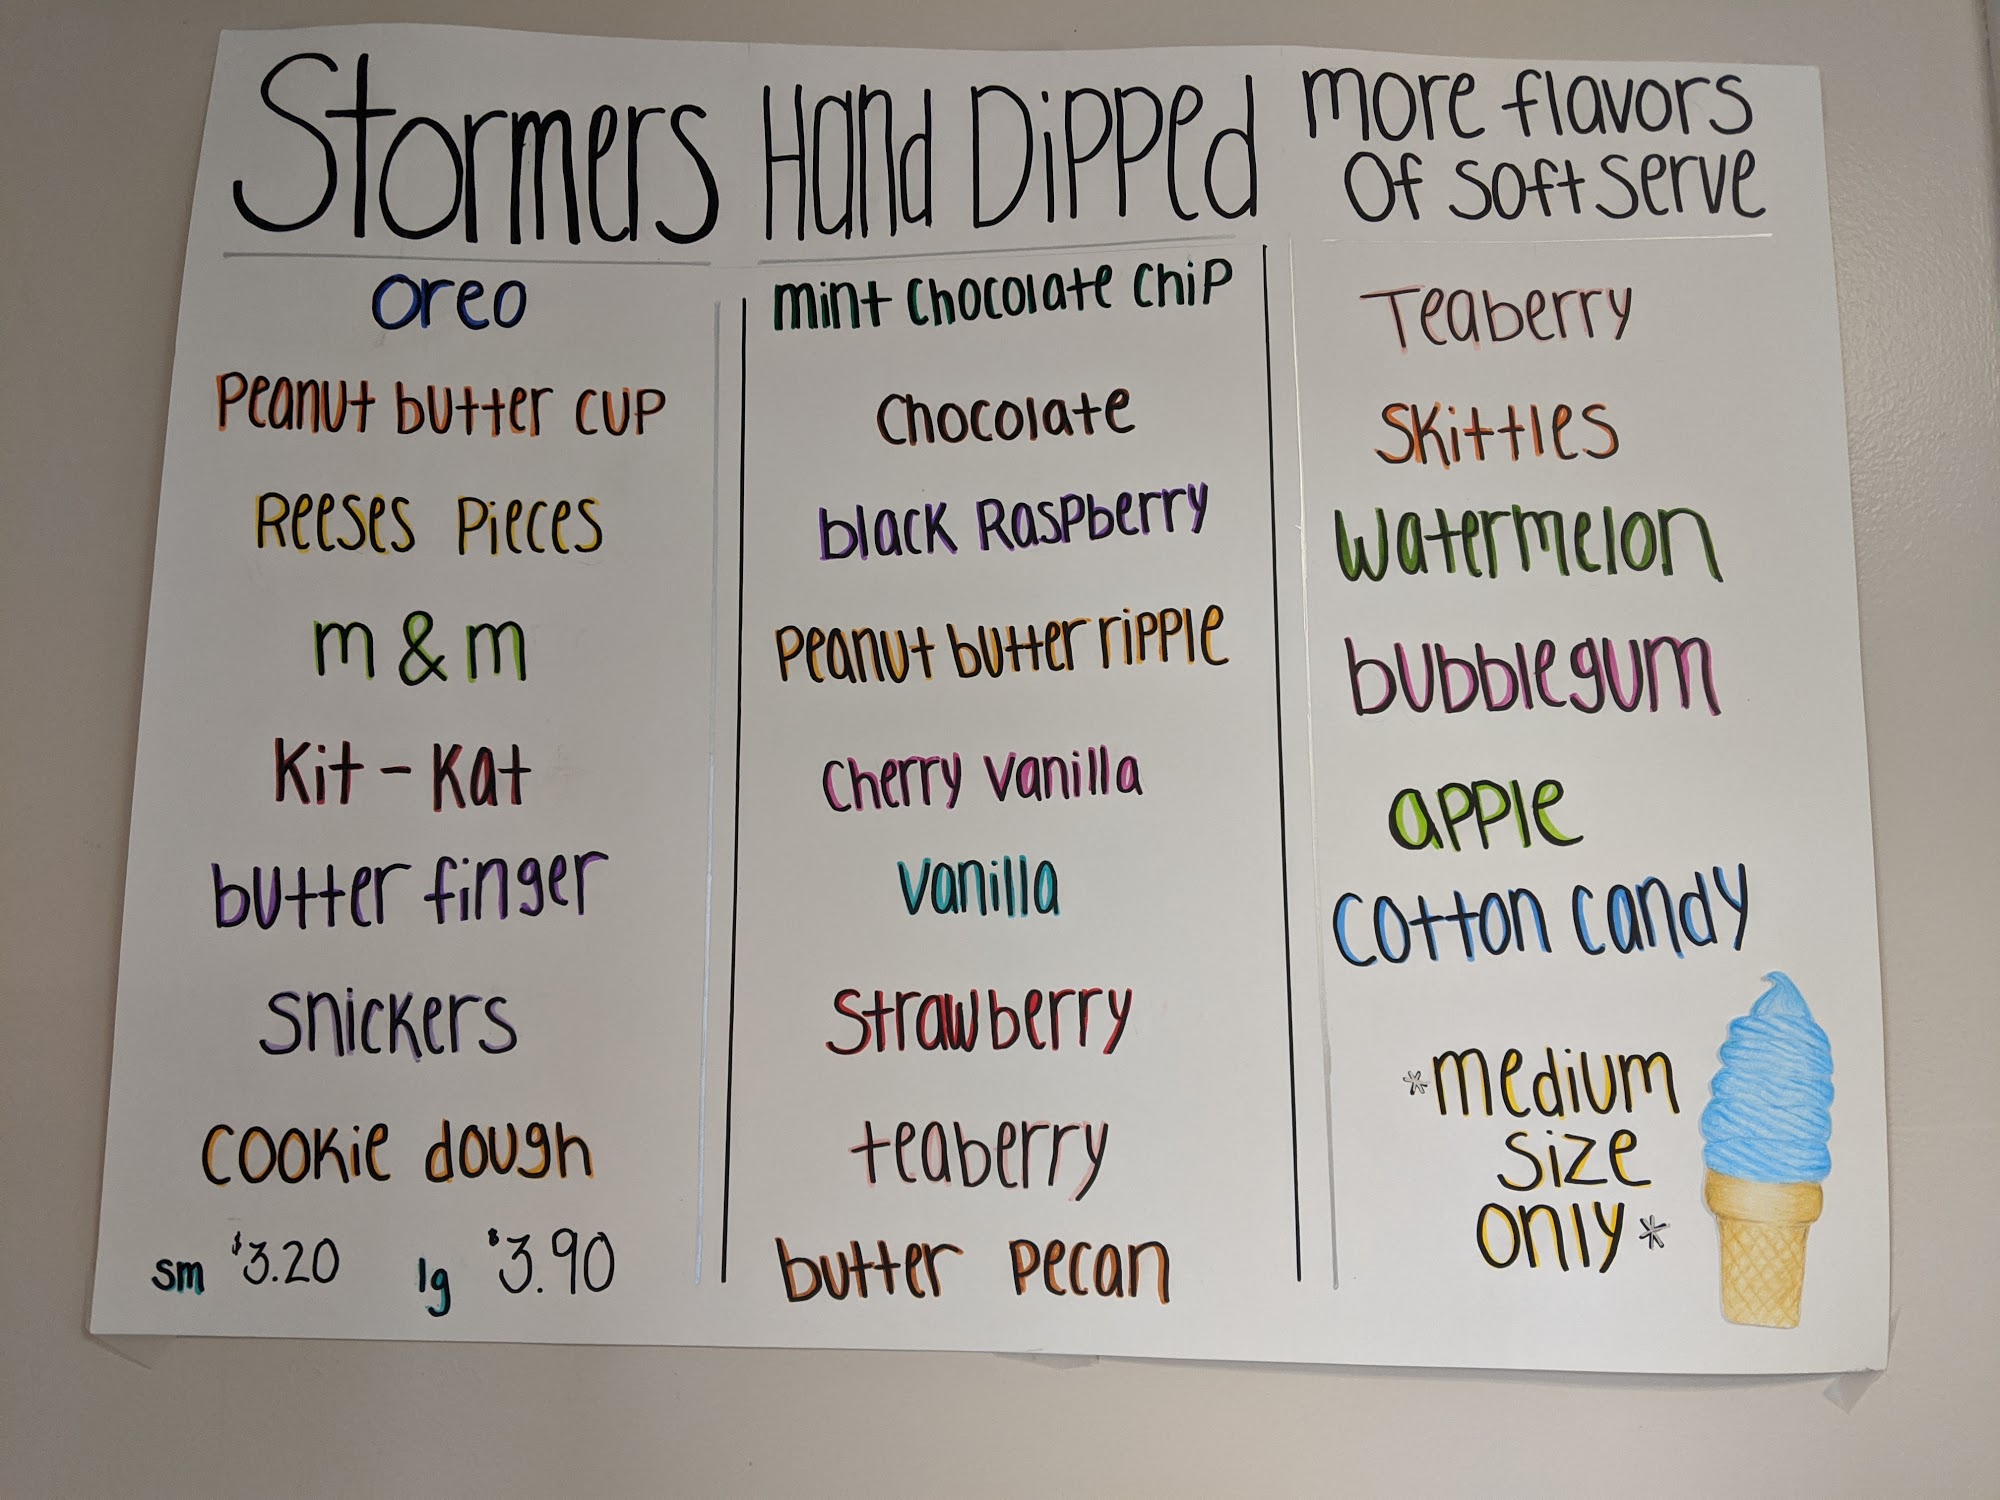 Stormers
Oreo
Peanut butter cup
Reeses Pieces
m & m
Kit - Kat
butter finger
Snickers
Cookie dough
sm $3.20 lg $3.90
Hand Dipped
mint chocolate chip
Chocolate
black Raspberry
Peanut butter ripple
Cherry Vanilla
Vanilla
Strawberry
teaberry
butter pecan
more flavors
of soft serve
Teaberry
Skittles
watermelon
bubblegum
apple
cotton candy
*medium
size
only*